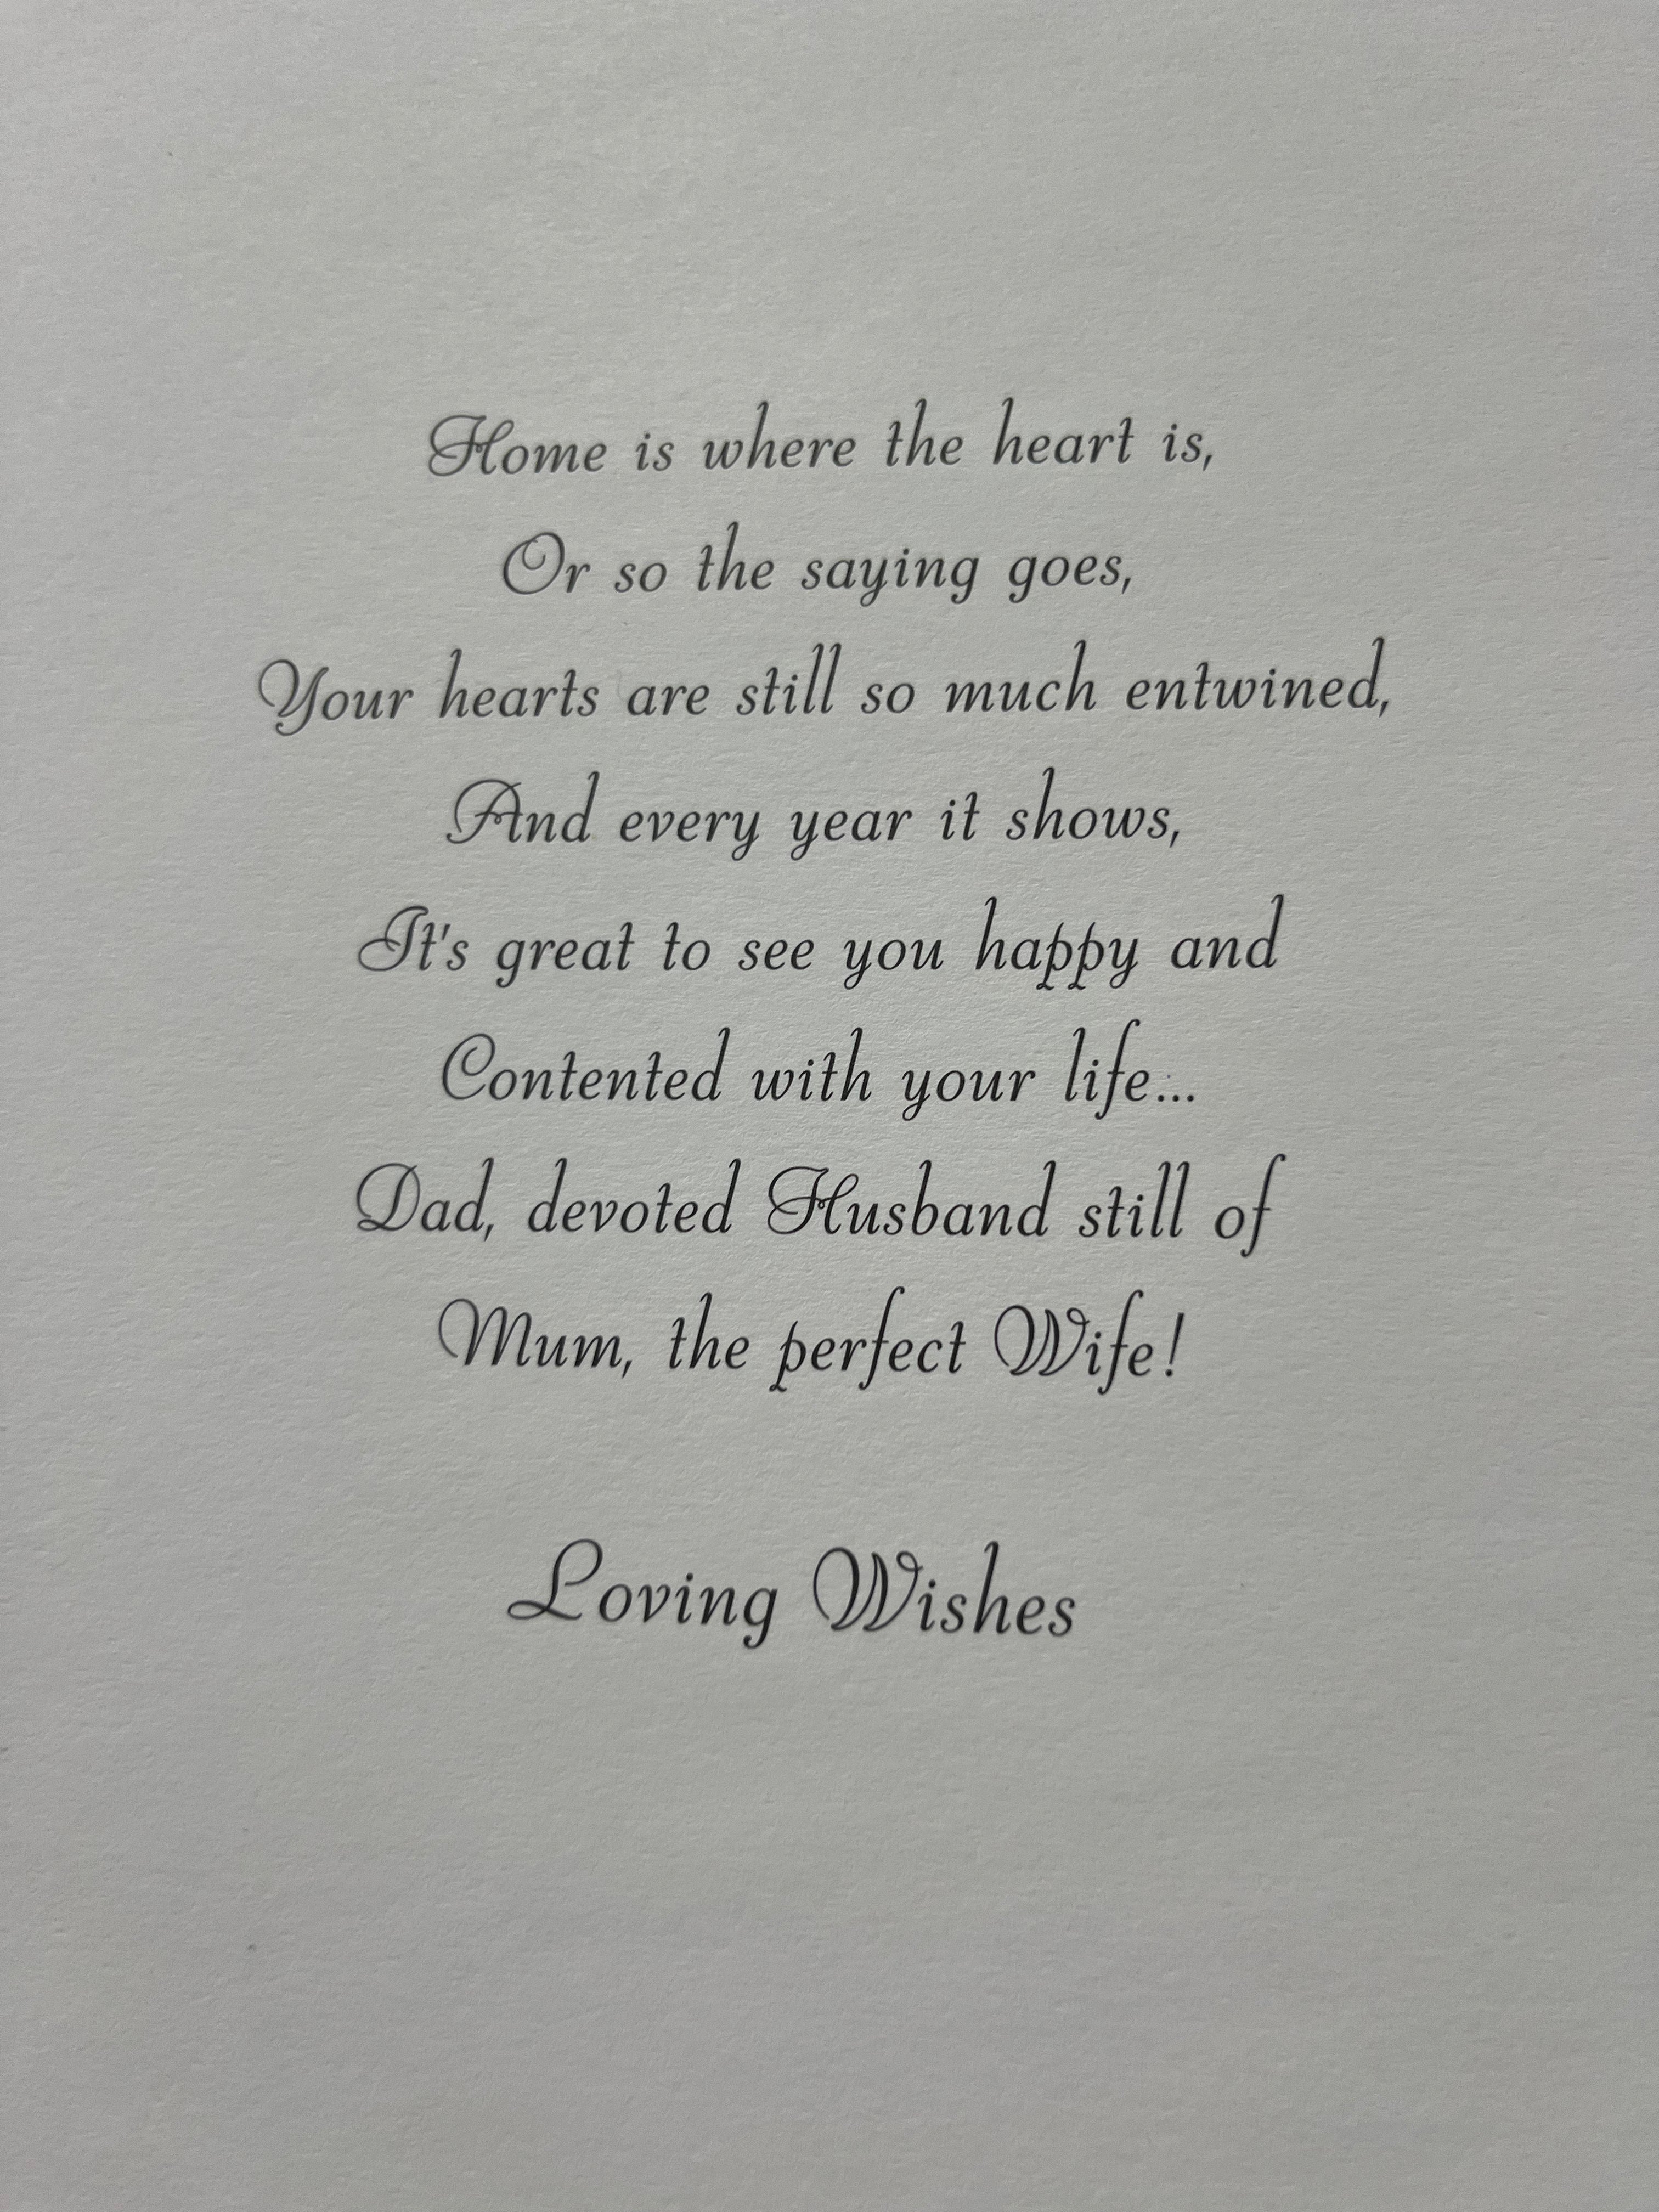 Home is where the heart is,
Or so the saying goes,
Your hearts are still so much entwined,
And every year it shows,
It's great to see you happy and
Contented with your life...
Dad, devoted Husband still of
Mum, the perfect Wife!
Loving Wishes